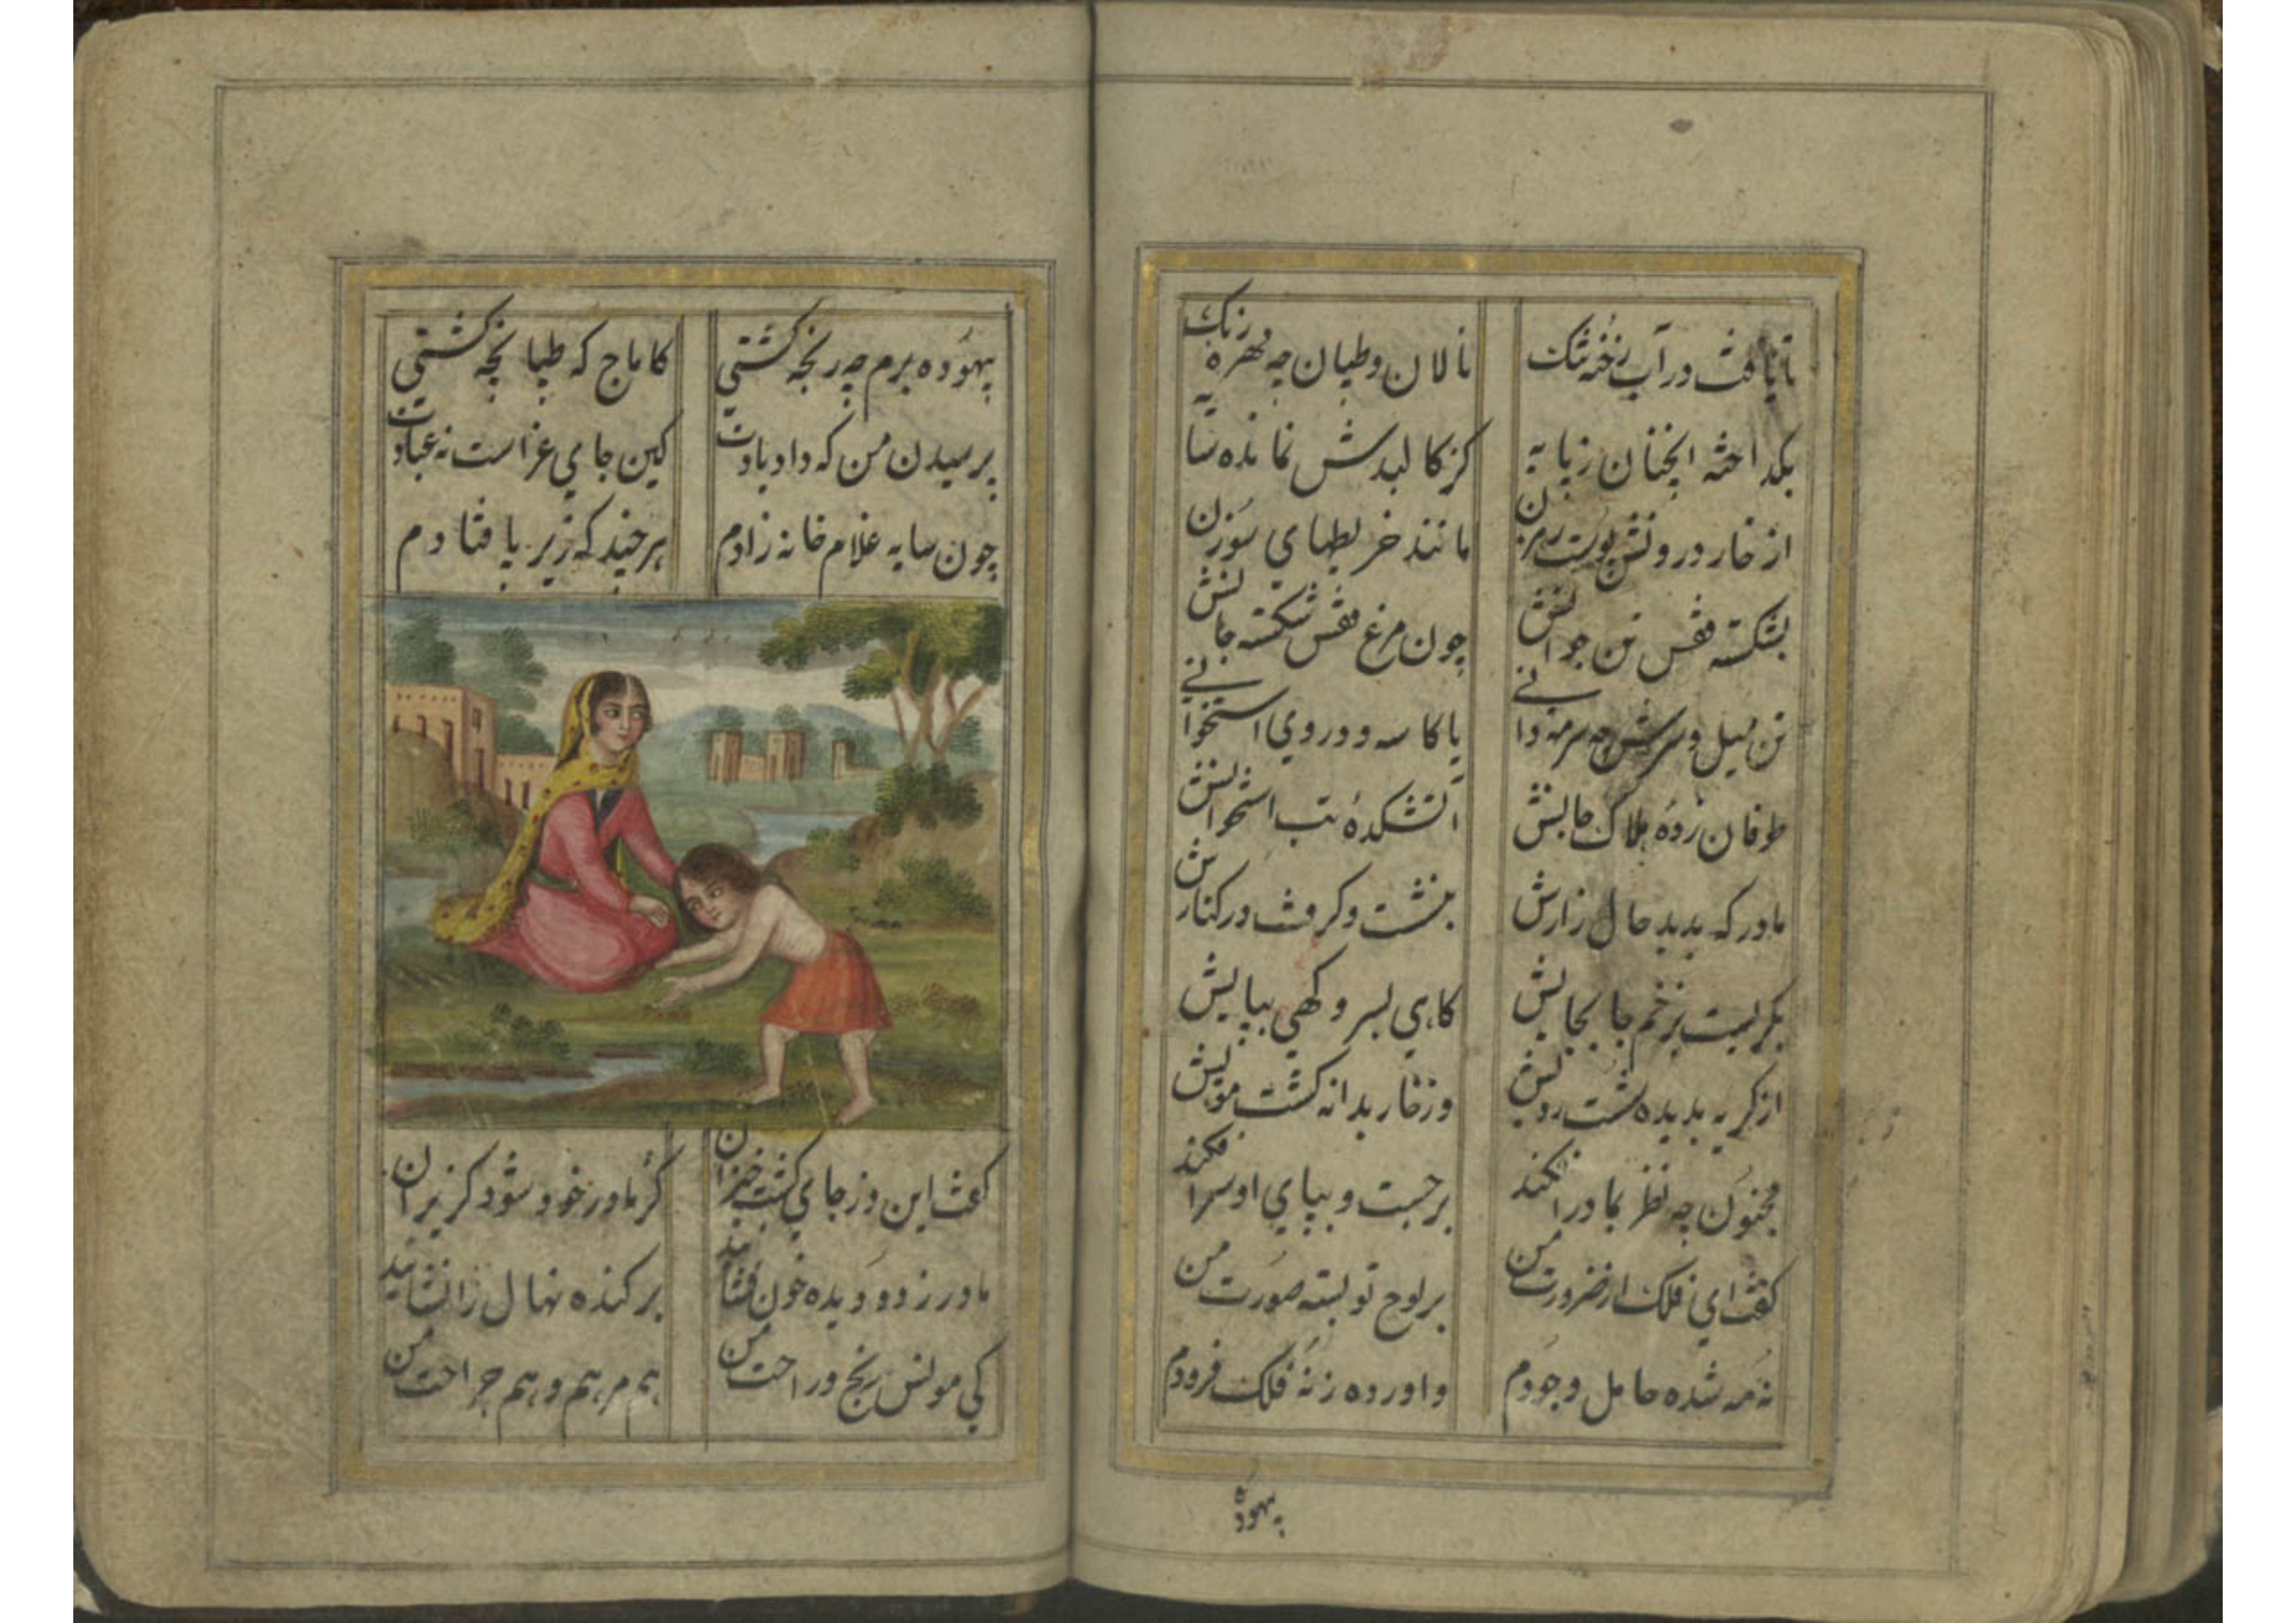 نالان و طپان چه زهره رنگ
بگداخته انچنان ز پایه
کز کالبدش نمانده سایه
از خار درونش پوست بر تن
مانند خریطهای سوزن
بشکسته قفس تن جوانش
چون مرغ قفس شکسته جانش
تن میل و سرش چه سرمه دانی
یا کاسه و در وی استخوانی
طوفان زده هلاک جانش
آتشکدهٔ تب استخوانش
مادر که بدید حال زارش
بنشست و گرفت در کنارش
بگریست بزخم جا بجایش
کاهی بسر و کهی بپایش
از گریه بدیده شست رویش
وز خار بدانه گشت مویش
مجنون چه نظر بمادر افکند
برجست و بپای او سر افکند
گفت ای فلک از ضرورت من
بر لوح تو بسته صورت من
نه مه شده حامل وجودم
واورده ز نه فلک فرودم
بیهوده
بیهوده برم چه رنجه گشتی
کاماج که طپانچه گشتی
پرسیدن من که داد یادت
کین جای عزاست نه عبادت
چون سایه غلام خانه زادم
هرچند که زیر پا فتادم
گفت این وز جای گشت خیزان
گز مادر خود شود گریزان
مادر ز دو دیده خون فشانید
برکنده نهال را نشانید
کی مونس رنج و راحت من
هم مرهم و هم جراحت من